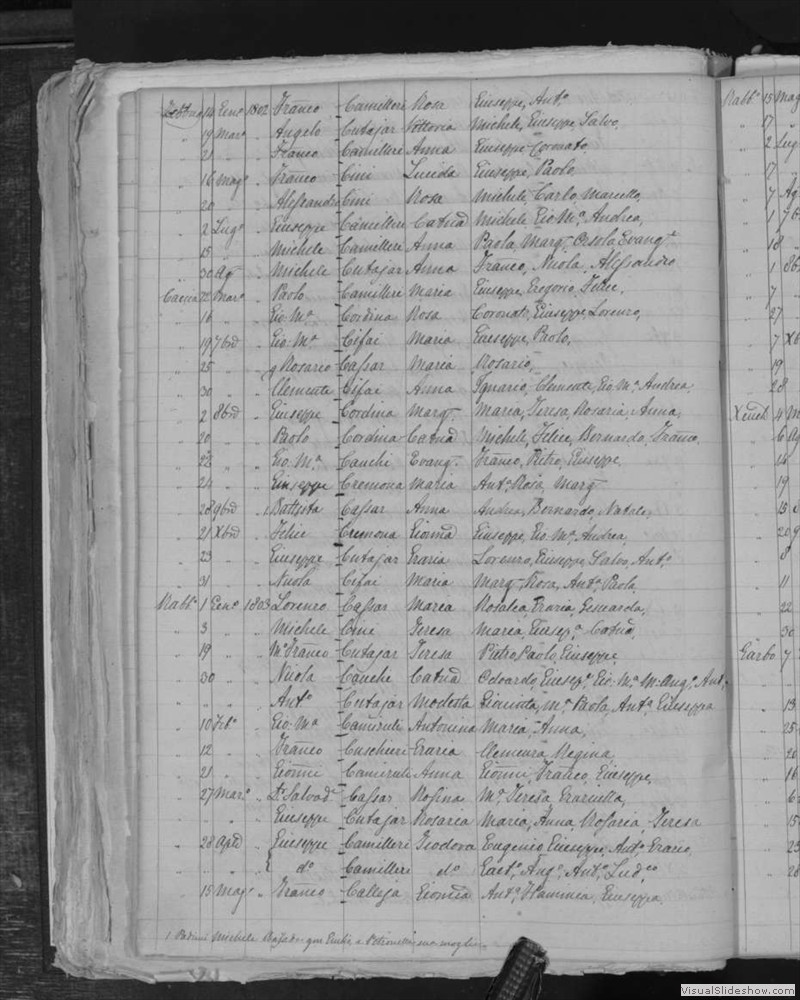 Zebbug 14 Genº 1802 Franco Camilleri Rosa Giuseppe, Antº
" 19 Marº " Angelo Cutajar Vittoria Michele, Giuseppe, Salvo,
" 21 " " Franco Camilleri Anna Giuseppe Coronato
" 16 Magº " Franco Cini Lucida Giuseppe, Paolo
" 20 " " Alessandro Cini Rosa Michele, Carlo, Marcello,
" 2 Lugº " Giuseppe Camilleri Catnã Michele Gio: Mª Andrea,
" 15 " " Michele Camilleri Anna Paola, Marg., Orsola, Evangª
" 30 Agº " Michele Cutajar Anna Franco, Nicola, Alessandro
Caccia 12 Marº " Paolo Camilleri Maria Giuseppe, Gregorio, Felice,
" 16 " " Gio: Mª Cordina Rosa Coronato, Giuseppe, Lorenzo,
" 19 7brẽ " Gio: Mª Cifai Maria Giuseppe, Paolo,
" 25 " " Rosario Cassar Maria Rosario,
" 30 " " Clemente Cifai Anna Ignazio, Clemente, Gio: Mª Andrea
" 2 8brẽ " Giuseppe Cordina Marg. Maria, Teresa, Rosaria, Anna,
" 20 " " Paolo Cordina Catnã Michele, Felice, Bernardo, Franco,
" 22 " " Gio: Mª Cauchi Evang. Franco, Pietro, Giuseppe
" 24 " " Giuseppe Cremona Maria Antª Rosa, Marg
" 28 9brẽ " Battista Cassar Anna Andrea, Bernardo, Natale,
" 21 Xbrẽ " Felice Cremona Gionnã Giuseppe, Gio: Mª Andrea,
" 23 " " Giuseppe Cutajar Grazia Lorenzo, Giuseppe, Salvo, Antº
" 31 " " Nicola Cifai Maria Marg Rosa, Antª Paola,
Rabbº 1 Genº 1803 Lorenzo Cassar Maria Rosalea, Grazia,
" 3 " " Michele Cini Teresa Maria, Giusepª Catnã,
" 19 " " Mº Franco Cutajar Teresa Pietro Paolo, Giuseppe,
" 30 " " Nicola Cauchi Catnã Odoardo, Giusepº, Gio: Mª M: Angº, Antº,
" " " " Antº Cutajar Modesta Giacinta, Mª Paola, Antª, Giuseppa
" 10 Febº " Gio: Mª Antonina Maria, Anna,
" 12 " " Franco Cuschieri Grazia Clemenza, Regina,
" 21 " " Gionni Anna Gionni, Franco, Giuseppe,
" 27 Marº " Dr Salvadẽ Cassar Rosina Mª Teresa,
" " " " Giuseppe Cutajar Rosaria Maria, Anna, Rosaria, Teresa
" 28 Aprlẽ " Giuseppe Camilleri Teodora Eugenio, Giuseppe, Antº, Grazio
" " " " dº Camilleri dº Gaetº, Angº, Antº, Ludco
" 15 Magº " Franco Calleja Gionnã Antª, Giuseppa
1. Padrini Michele
Rabbº 15 Mag
" 17 "
" 2 Lug
" 17 "
" 7 Ag
" 1 7b
" 18 "
" 1 8b
" 7 "
" 27 "
" 7 Xb
" 19
" 28
Xeuch 4 M
" 6 Ag
" 14
" 19
" 15
" 20 9
" 8
" 11
" 22
" 30
Garbo 7
" 13
" 25
" 20
" 16
" 6
" 15
" 23
" 28
VisualSlideshow.com